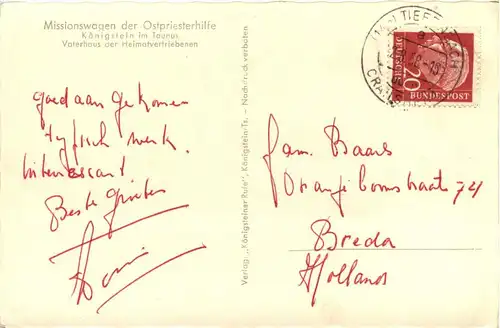 Missionswagen der Ostpriesterhilfe
Königstein im Taunus
Vaterhaus der Heimatvertriebenen
goed aan gekomen
typisch werk
interessant
Beste groeten
Verlag: „Königsteiner Rufe“, Königstein-Ts. - Nachdruck verboten
TIEFENBACH
20
DEUTSCHE
BUNDESPOST
Fam. Baars
Oranjeboomstraat 74
Breda
Holland